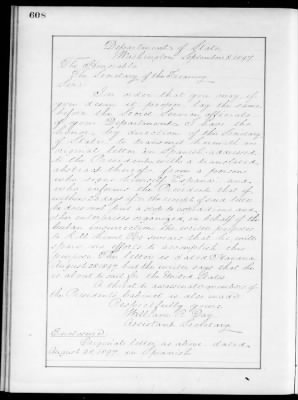 608
Department of State,
Washington September 8, 1897.
The Honorable
The Secretary of the Treasury.
Sir:
In order that you may, if
you deem it proper, lay the same
before the Secret Service officials
of your Department, I have the
honor, by direction of the Secretary
of State, to transmit herewith an
original letter in Spanish addressed
to the President, with a translated
abstract thereof, from a person
who signs España, and
who informs the President that if
within 30 days from the receipt of said letter
he does not put a stop to expeditions and
other enterprises organized in behalf of the
Cuban insurrection the writer proposes
to kill him. He swears that he will
spare no efforts to accomplish the
purpose. The letter is dated Havana,
August 28, 1897, but the writer says that he
is about to sail for the United States.
A threat to assassinate members of
the President's Cabinet is also made.
Respectfully yours,
William R. Day
Assistant Secretary.
Enclosure:
Original letter as above, dated
August 28, 1897, in Spanish